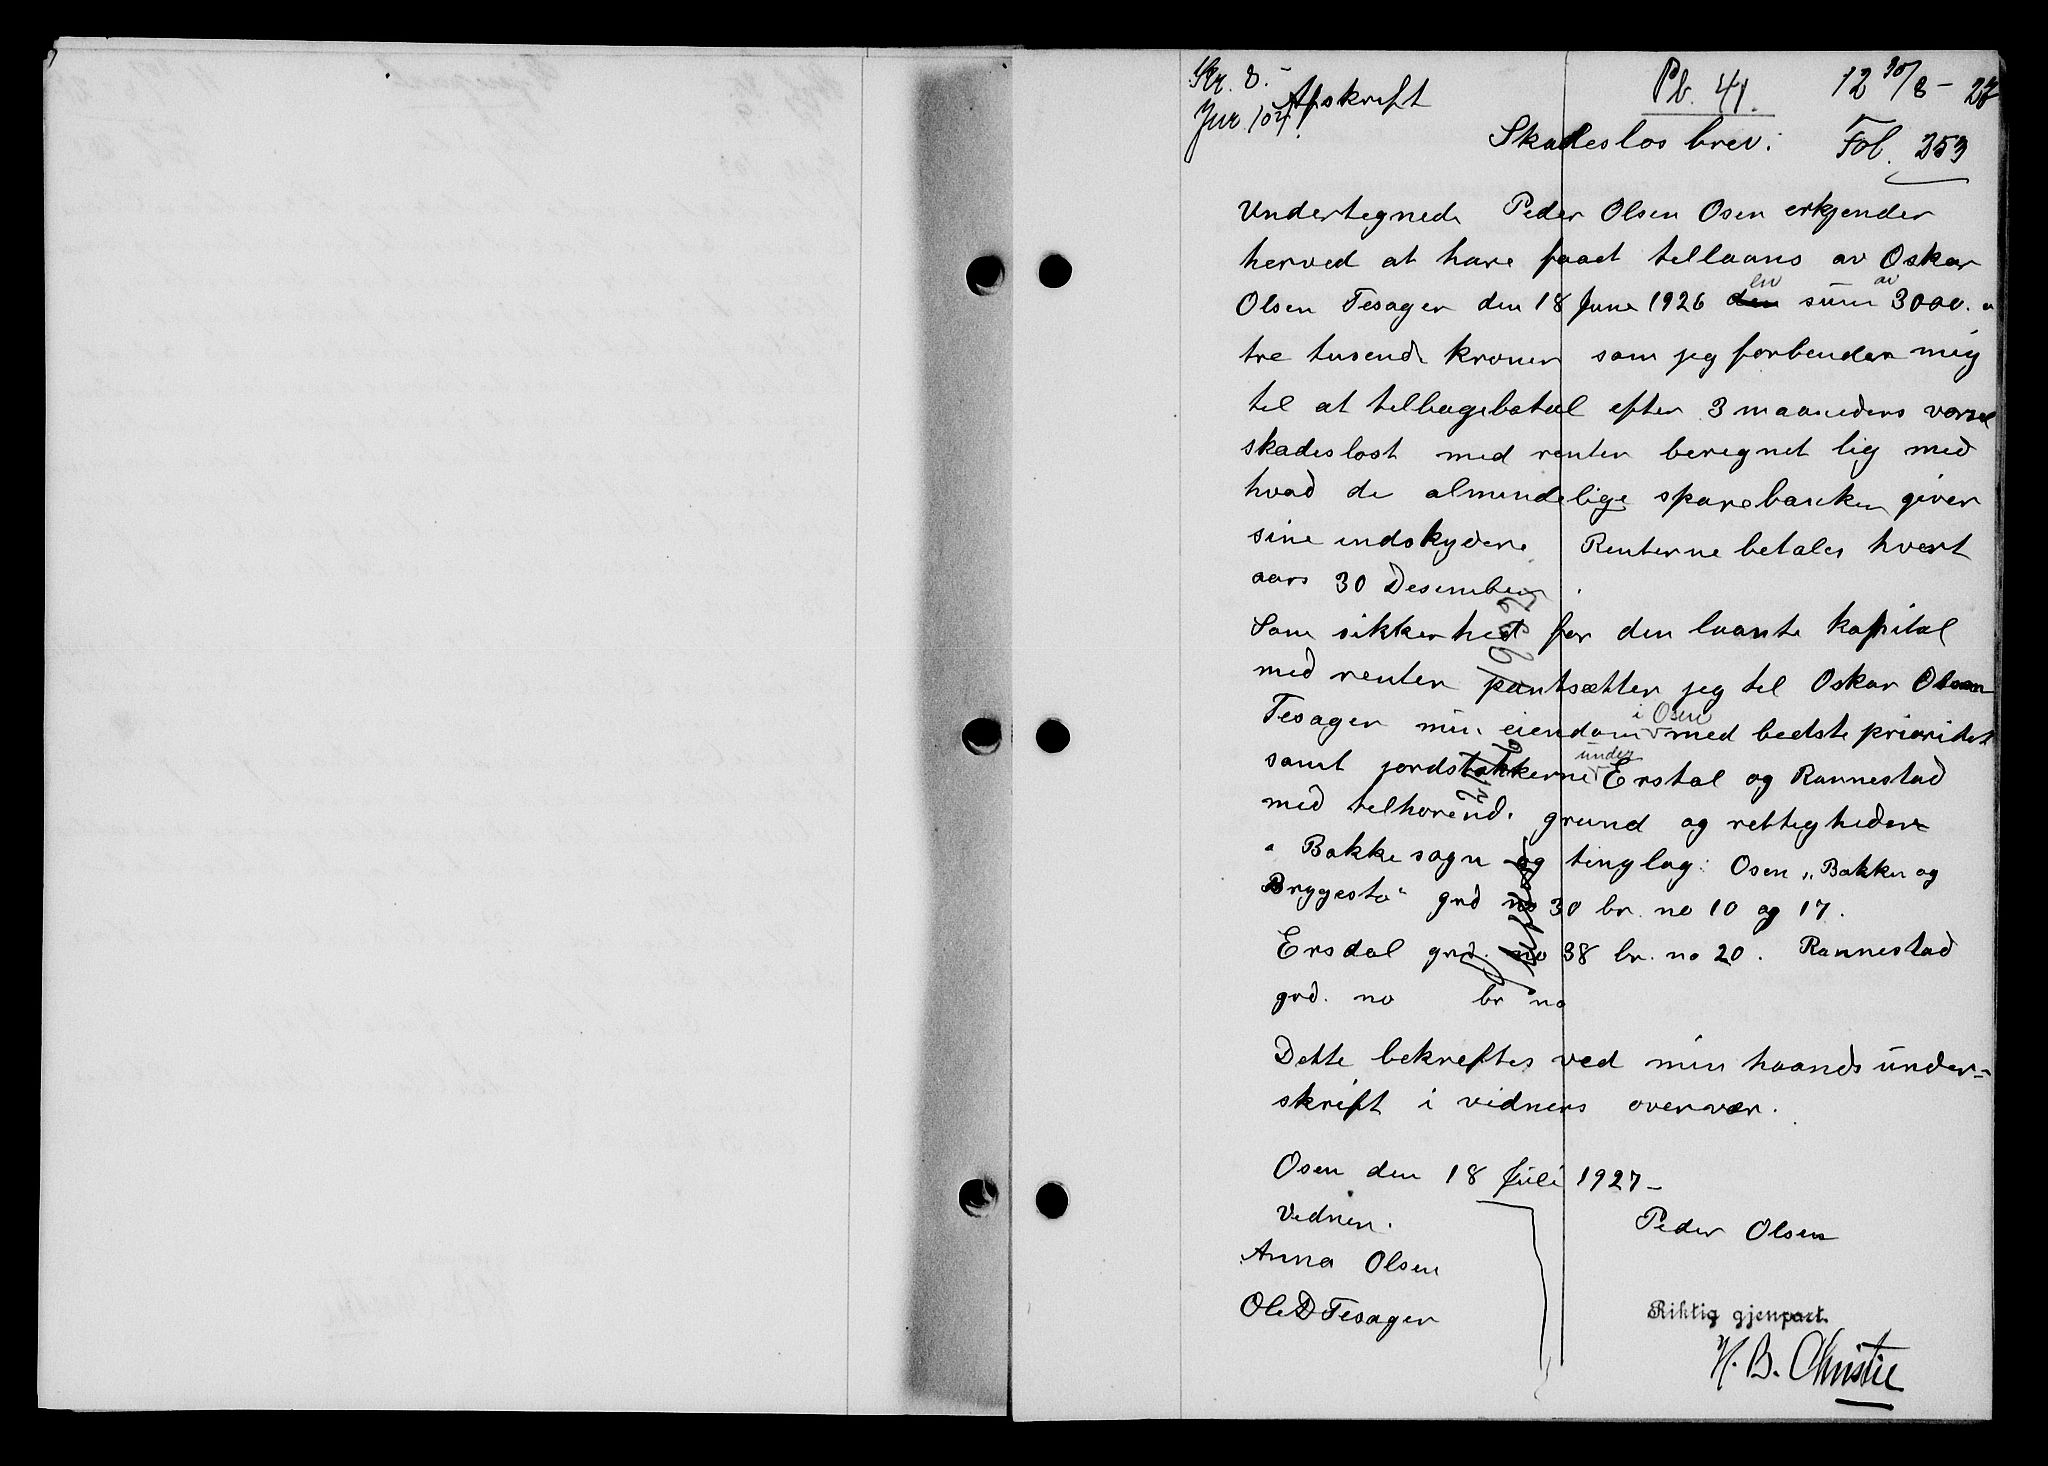 Kr. 8.- Afskrift Pb. 41. 12 30/8 - 27
Jur 104. Skadeslos brev. Fol. 253
Undertegnede Peder Olsen Osen erkjender
herved at have faaet tellaans av Oskar
Olsen Tesager den 18 June 1926 den en sum av 3000.
tre tusend kroner som jeg forbender mig
til at tilbagebetal efter 3 maaneders varsel
skadeslost med renter beregnet lig med
hvad de almendelige sparebanker giver
sine indskydere Renterne betales hvert
aars 30 Desember.
Som sikkerhed for den laante kapital
med renter pantsætter jeg til Oskar Olsen
Tesager min eiendom i Osen med bedste prioritet
samt jordstøkkerne under Erstal og Rannestad
med telhorend. grund og rettigheder
i Bakke sogn og tinglag: Osen „Bakken og
Bryggestø" grd no 30 br. no 10 og 17.
Ersdal grd. no 38 br. no 20. Rannestad
grd. no br no
Dette bekreftes ved min haands under-
skrift i vidners overvær.
Osen den 18 Juli 1927-
Vidner.
Peder Olsen
Anna Olsen
Ole D Tesager
Riktig gjenpart.
H. B. Christie